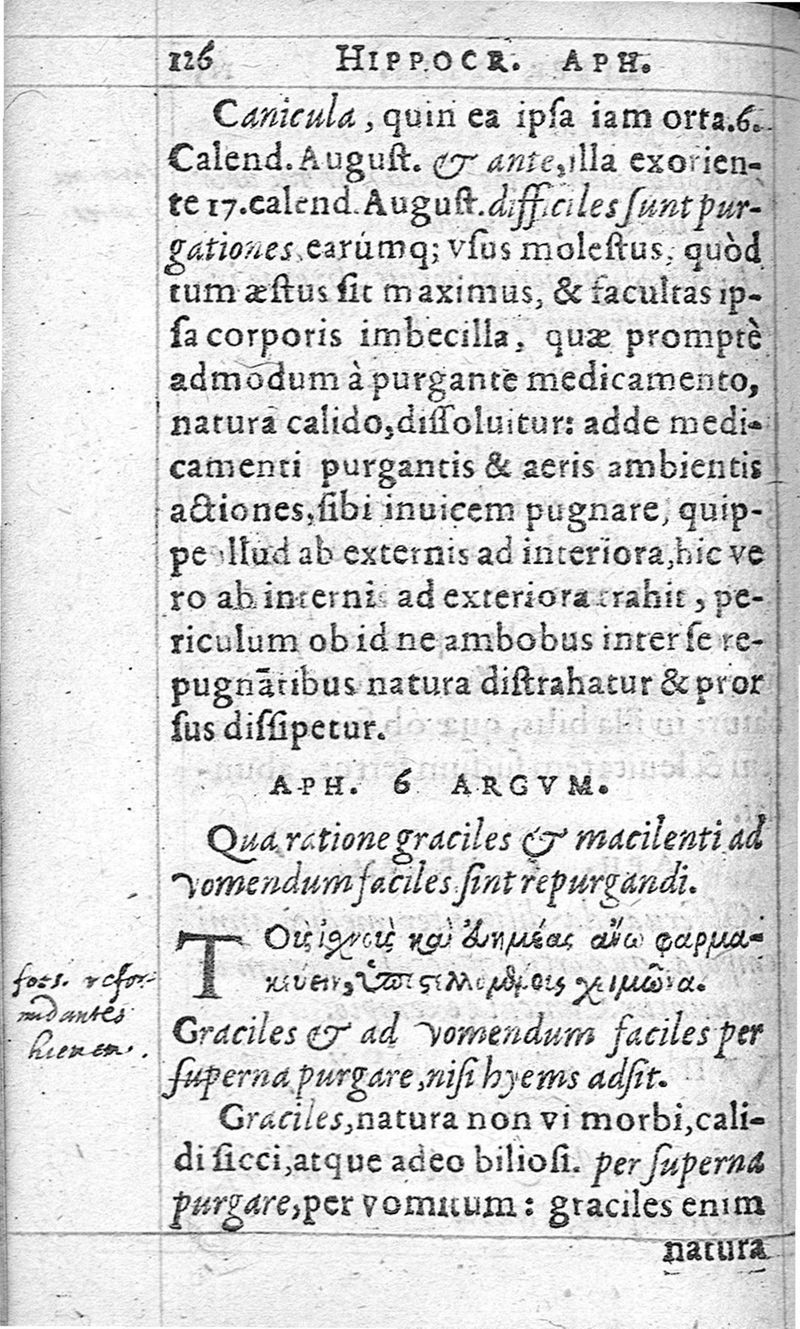 126 HIPPOCR. APH.
Canicula, quin ea ipſa iam orta.6.
Calend. Auguſt. & ante, illa exorien-
te 17. calend. Auguſt. difficiles ſunt pur-
gationes, earúmq; vſus moleſtus, quòd
tum æſtus ſit maximus, & facultas ip-
ſa corporis imbecilla, quæ promptè
admodum à purgante medicamento,
natura calido, diſſoluitur: adde medi-
camenti purgantis & aeris ambientis
actiones, ſibi inuicem pugnare, quip-
pe illud ab externis ad interiora, hic ve
ro ab internis ad exteriora trahit, pe-
riculum ob id ne ambobus inter ſe re-
pugnātibus natura diſtrahatur & pror
ſus diſſipetur.
APH. 6 ARGVM.
Qua ratione graciles & macilenti ad
vomendum faciles ſint repurgandi.
ΤΟις ἰσχνοὺς καὶ ἀνημέας ἄνω φαρμα-
κεύειν, ὑποστελλομένοις χειμῶνα.
Graciles & ad vomendum faciles per
ſuperna purgare, niſi hyems adſit.
fors. refor-
midantes
hiemem.
Graciles, natura non vi morbi, cali-
di ſicci, atque adeo bilioſi. per ſuperna
purgare, per vomitum: graciles enim
natura